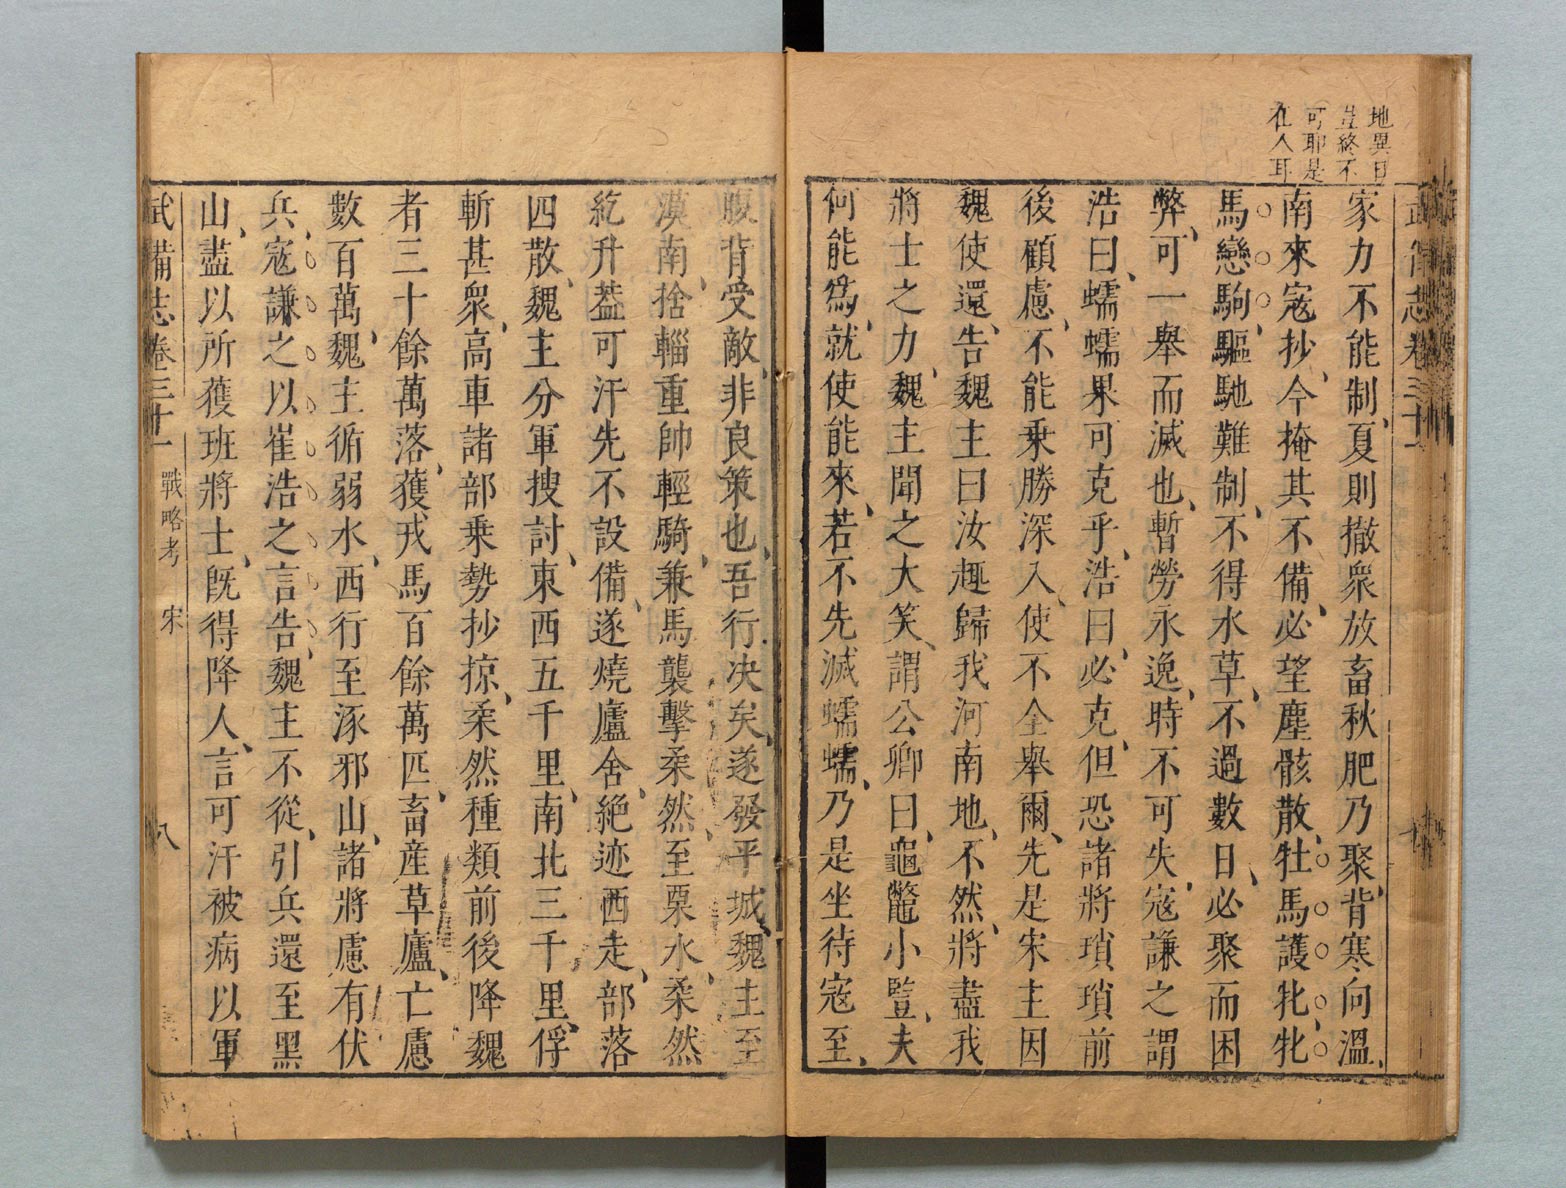 地異日
豈終不
可耶是
在人耳
武備志卷三十一
家力不能制、夏則撤衆放畜秋肥乃聚、背寒向溫、
南來寇抄、今掩其不備、必望塵駭散、牡馬護牝、牝
馬戀駒、驅馳難制、不得水草、不過數日、必聚而困
弊、可一舉而滅也、暫勞永逸、時不可失、寇謙之謂
浩曰、蠕蠕果可克乎、浩曰、必克、但恐諸將瑣瑣前
後顧慮、不能乗勝深入、使不全舉爾、先是宋主因
魏使還、告魏主曰汝趣歸我河南地、不然、將盡我
將士之力、魏主聞之大笑、謂公卿曰、龜鼈小豎、夫
何能爲、就使能來、若不先滅蠕蠕、乃是坐待寇至、
腹背受敵、非良策也、吾行决矣、遂發平城、魏主至
漠南、捨輜重帥輕騎、兼馬襲擊柔然、至栗水、柔然
紇升葢可汗先不設備、遂燒廬舍、絕迹西走、部落
四散、魏主分軍搜討、東西五千里、南北三千里、俘
斬甚衆、高車諸部乗勢抄掠、柔然種類前後降魏
者三十餘萬落、獲戎馬百餘萬匹、畜産草廬、亡慮
數百萬、魏主循弱水、西行至涿邪山、諸將慮有伏
兵、寇謙之以崔浩之言告、魏主不從、引兵還至黑
山、盡以所獲班將士、旣得降人、言可汗被病以軍
武備志卷三十一 戰略考 宋 八